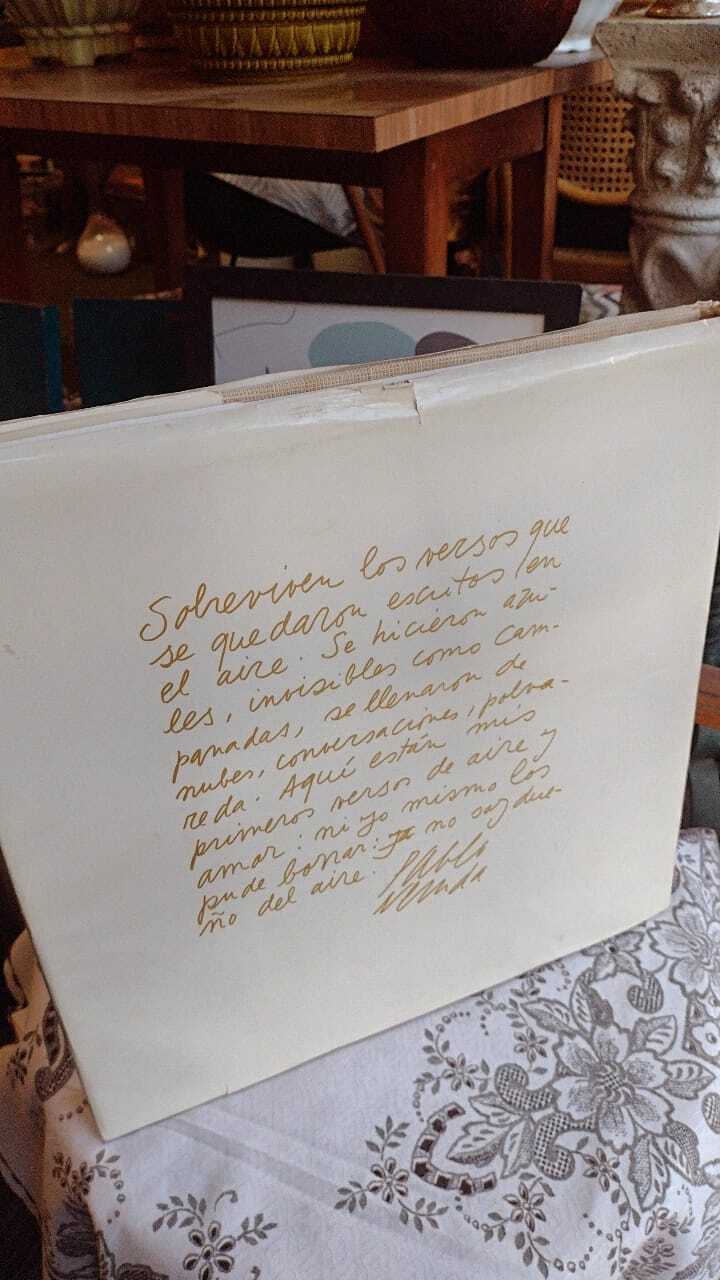 Sobreviven los versos que
se quedaron escritos en
el aire. Se hicieron azu-
les, invisibles como cam-
panadas, se llenaron de
nubes, conversaciones, polva-
reda. Aquí están mis
primeros versos de aire y
amar: ni yo mismo los
pude borrar: ya no soy due-
ño del aire.
Pablo
Neruda